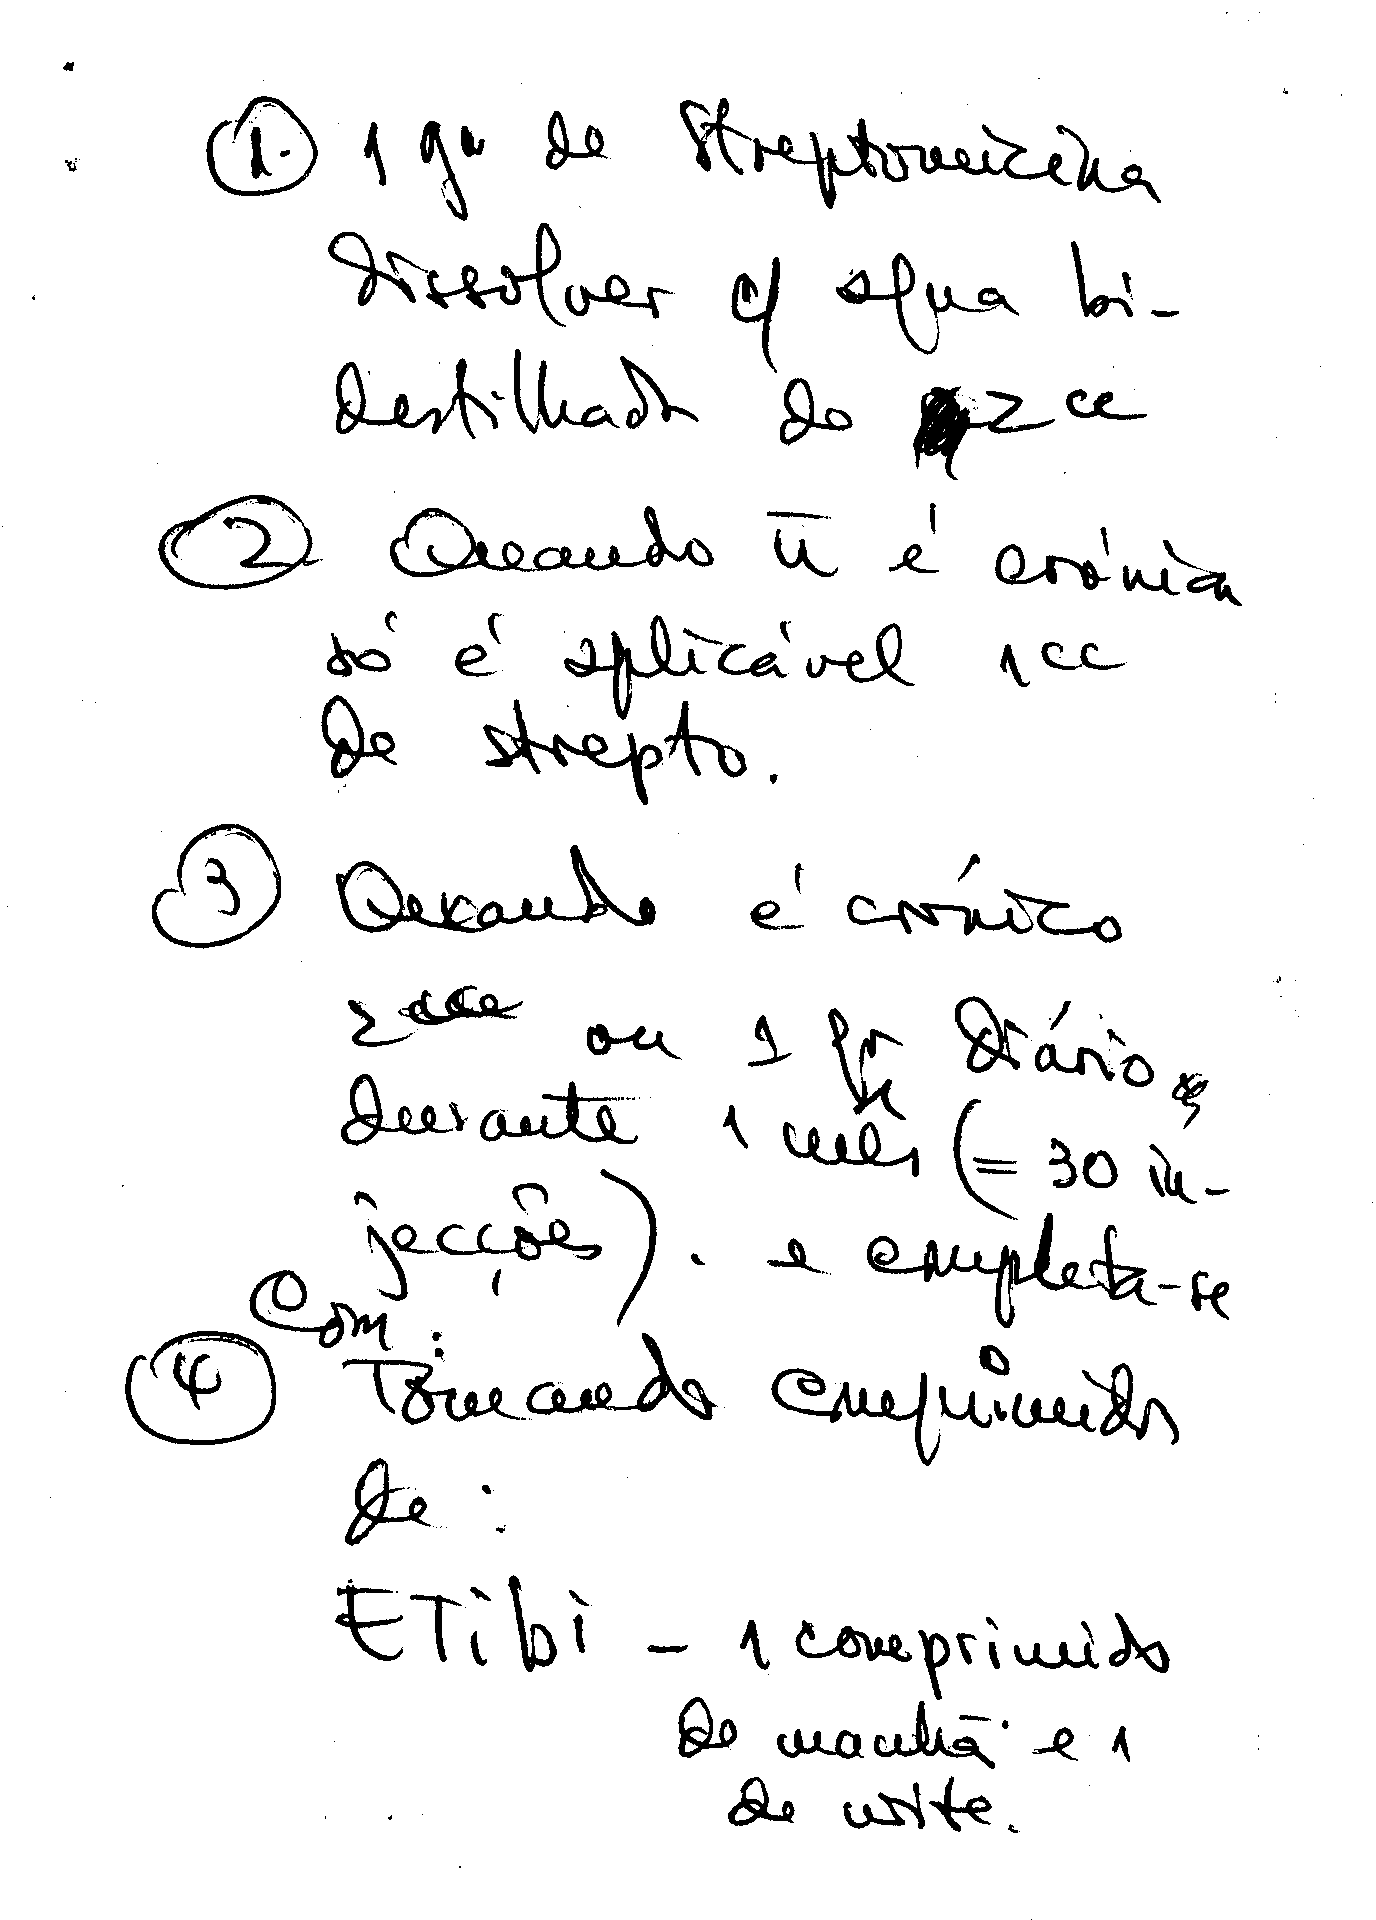 1. 1 gr de Streptomicina
dissolver c/ agua bi-
destilhada de 2 cc
2 Quando ñ é crónica
só é aplicável 1 cc
de strepto.
3 Quando é crónico
2 ou 1 gr diário
durante 1 mês (= 30 in-
jecções). e completa-se
Com:
4 Tomando comprimidos
de:
ETibi - 1 comprimido
de manhã e 1
de noite.